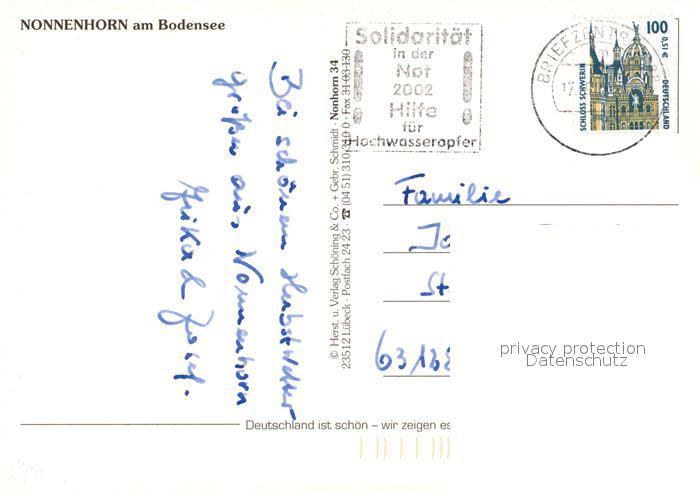 NONNENHORN am Bodensee
Bei schönem Herbstwetter
grüßen aus Nonnenhorn
© Herst. u. Verlag Schöning & Co. + Gebr. Schmidt · Nonhorn 34
23512 Lübeck · Postfach 24 23 · ☎ (04 51) 310 310 · Fax 31 03 130
Solidarität
in der
Not
2002
Hilfe
für
Hochwasseropfer
BRIEFZENTR
17
100
0,51 €
SCHLOSS SCHWERIN
DEUTSCHLAND
Familie
Jo
St
63138
privacy protection
Datenschutz
Deutschland ist schön – wir zeigen es